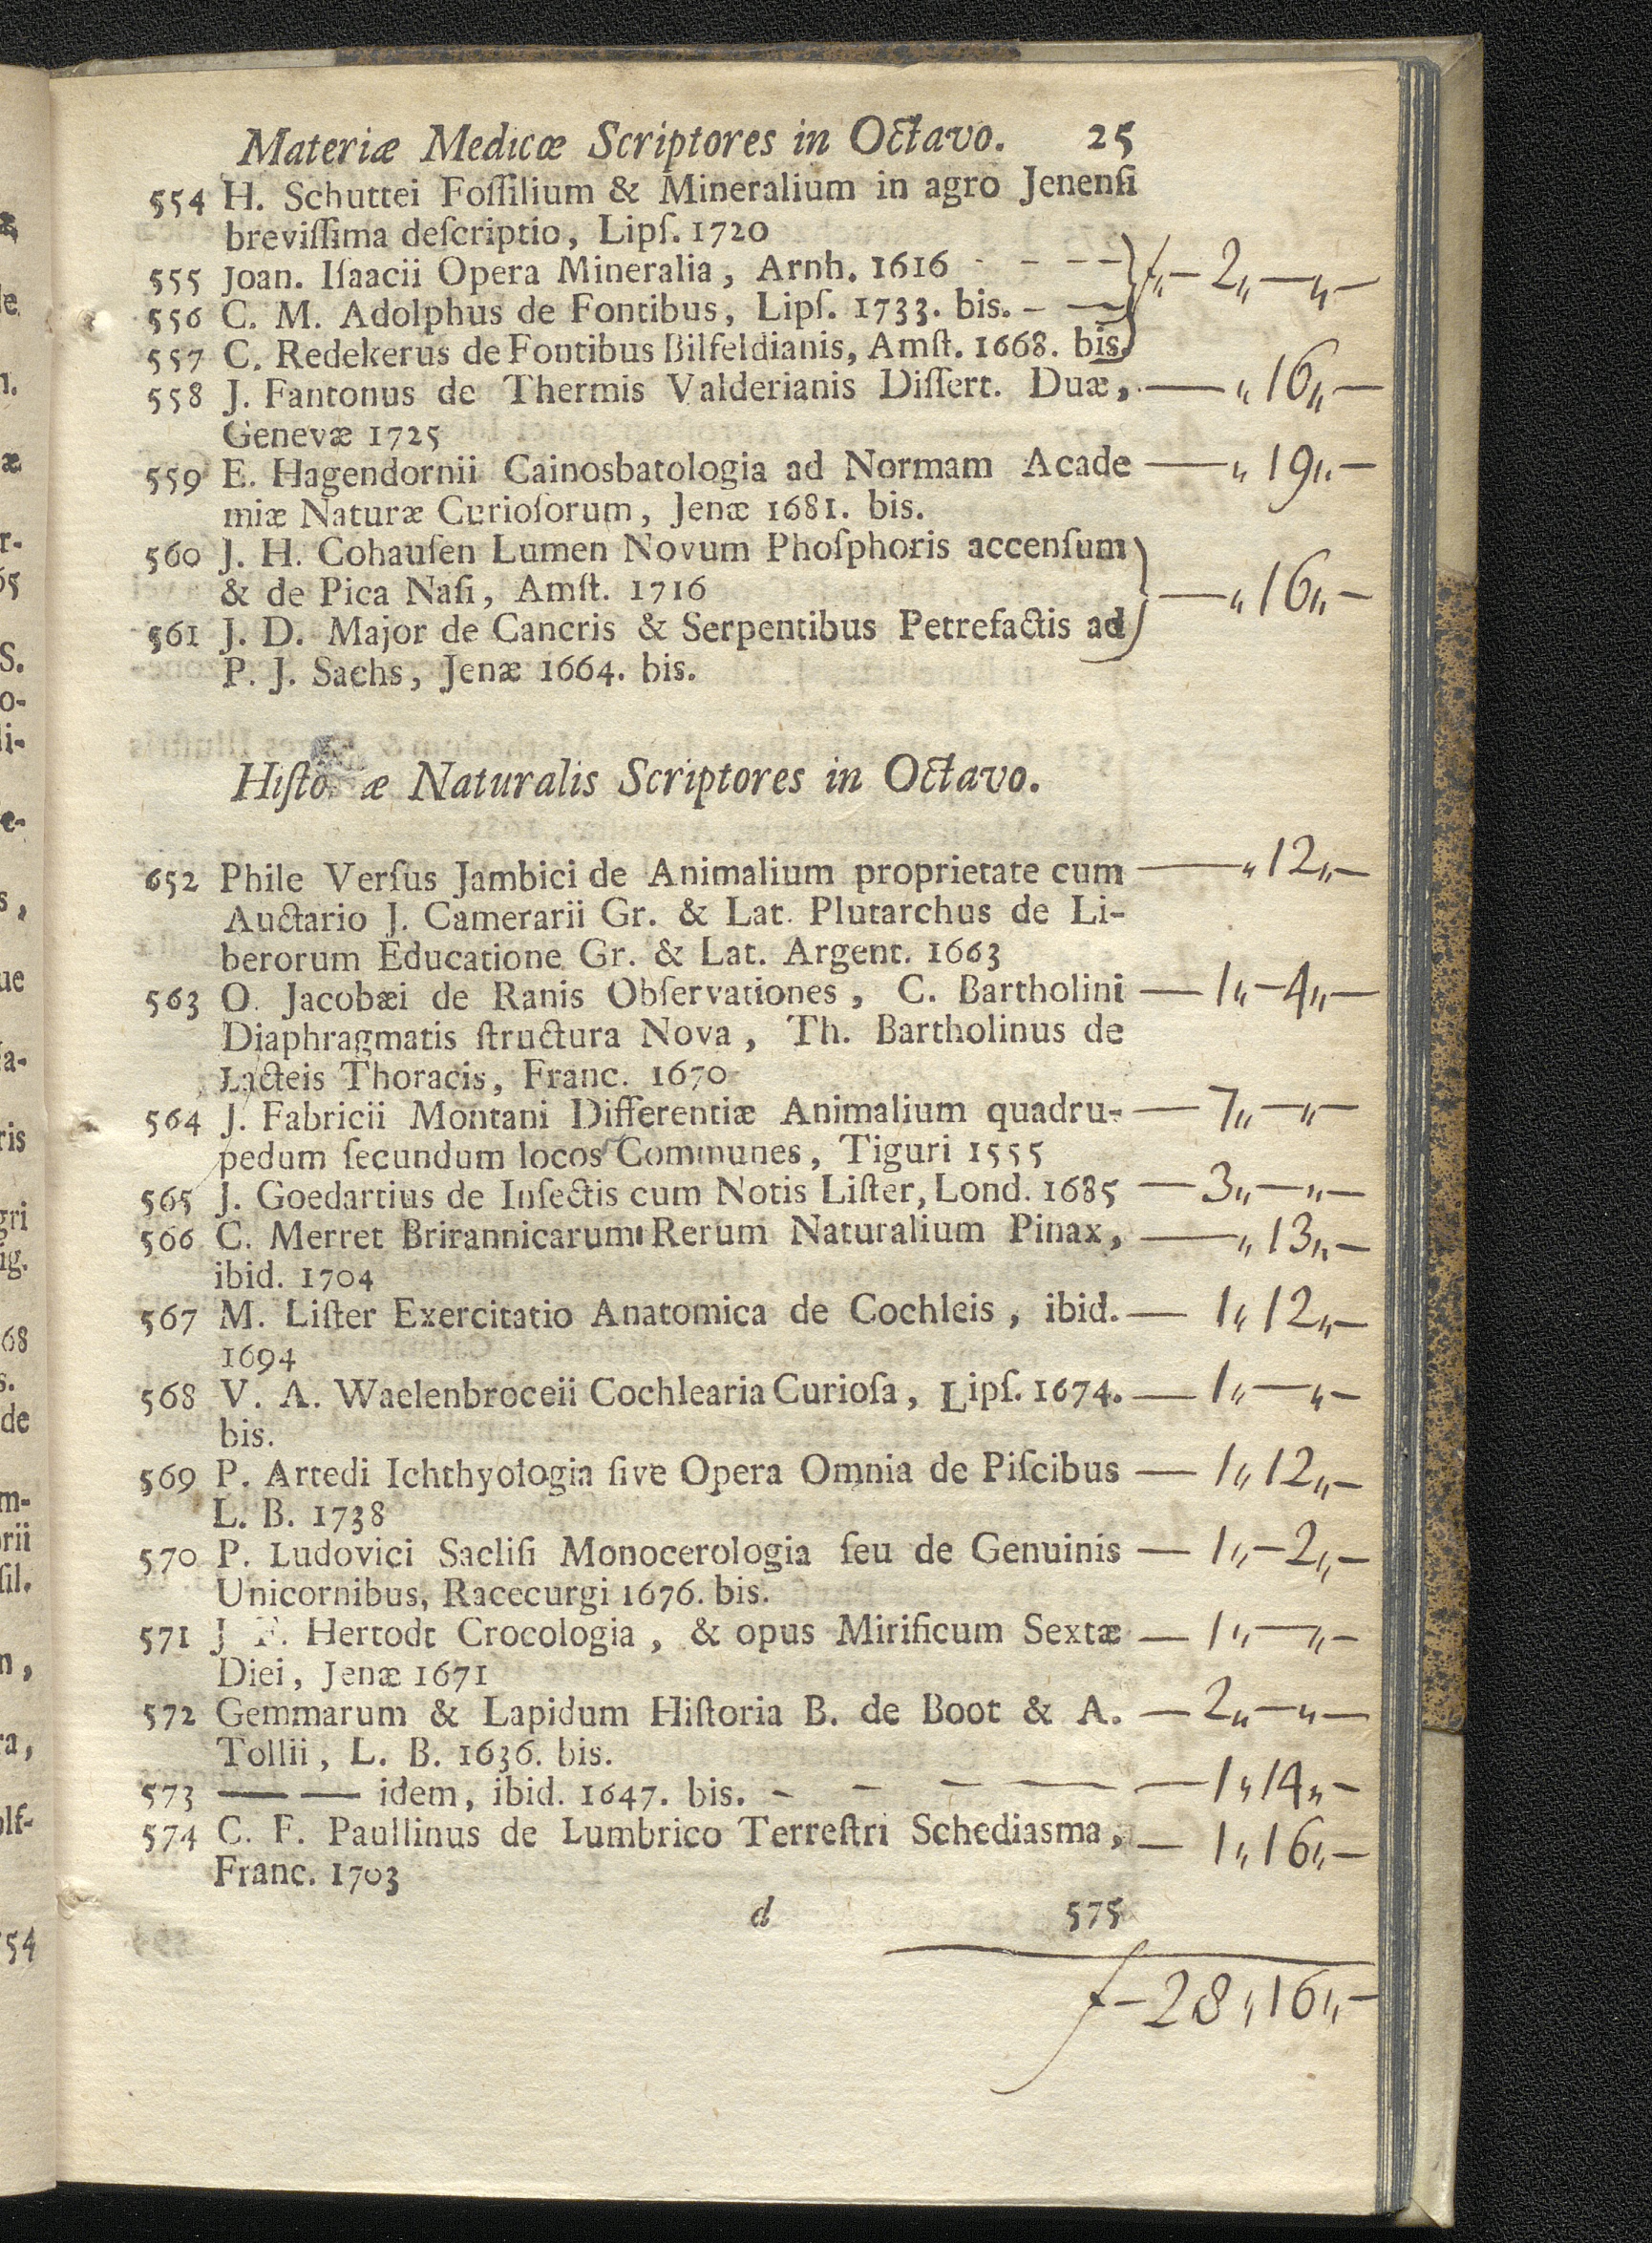 Materiæ Medicæ Scriptores in Octavo. 25
554 H. Schuttei Foſſilium & Mineralium in agro Jenenſi
breviſſima deſcriptio, Lipſ. 1720
555 Joan. Iſaacii Opera Mineralia, Arnh. 1616 - - - - f „ - 2 „ — „ -
556 C. M. Adolphus de Fontibus, Lipſ. 1733. bis. - —
557 C. Redekerus de Fontibus Bilfeldianis, Amſt. 1668. bis.
558 J. Fantonus de Thermis Valderianis Diſſert. Duæ, — „ 16 „ -
Genevæ 1725
559 E. Hagendornii Cainosbatologia ad Normam Acade — „ 19 „ -
miæ Naturæ Curioſorum, Jenæ 1681. bis.
560 J. H. Cohauſen Lumen Novum Phoſphoris accenſum
& de Pica Naſi, Amſt. 1716 — „ 16 „ -
561 J. D. Major de Cancris & Serpentibus Petrefactis ad
P. J. Sachs, Jenæ 1664. bis.
Hiſto æ Naturalis Scriptores in Octavo.
652 Phile Verſus Jambici de Animalium proprietate cum — „ 12 „ -
Auctario J. Camerarii Gr. & Lat. Plutarchus de Li-
berorum Educatione Gr. & Lat. Argent. 1663
563 O. Jacobæi de Ranis Obſervationes, C. Bartholini — 1 „ - 4 „ -
Diaphragmatis ſtructura Nova, Th. Bartholinus de
Lacteis Thoracis, Franc. 1670
564 J. Fabricii Montani Differentiæ Animalium quadru- — 7 „ — „ -
pedum ſecundum locos Communes, Tiguri 1555
565 J. Goedartius de Inſectis cum Notis Liſter, Lond. 1685 — 3 „ — „ -
566 C. Merret Brirannicarum Rerum Naturalium Pinax, — „ 13 „ -
ibid. 1704
567 M. Liſter Exercitatio Anatomica de Cochleis, ibid. — 1 „ 12 „ -
1694
568 V. A. Waelenbroceii Cochlearia Curioſa, Lipſ. 1674. — 1 „ — „ -
bis.
569 P. Artedi Ichthyologia ſive Opera Omnia de Piſcibus — 1 „ 12 „ -
L. B. 1738
570 P. Ludovici Sacliſi Monocerologia ſeu de Genuinis — 1 „ - 2 „ -
Unicornibus, Racecurgi 1676. bis.
571 J F. Hertodt Crocologia, & opus Mirificum Sextæ — 1 „ — „ -
Diei, Jenæ 1671
572 Gemmarum & Lapidum Hiſtoria B. de Boot & A. — 2 „ — „ -
Tollii, L. B. 1636. bis.
573 — — idem, ibid. 1647. bis. - - - — — 1 „ 14 „ -
574 C. F. Paullinus de Lumbrico Terreſtri Schediasma, — 1 „ 16 „ -
Franc. 1703
d 575
f - 28 „ 16 „ -